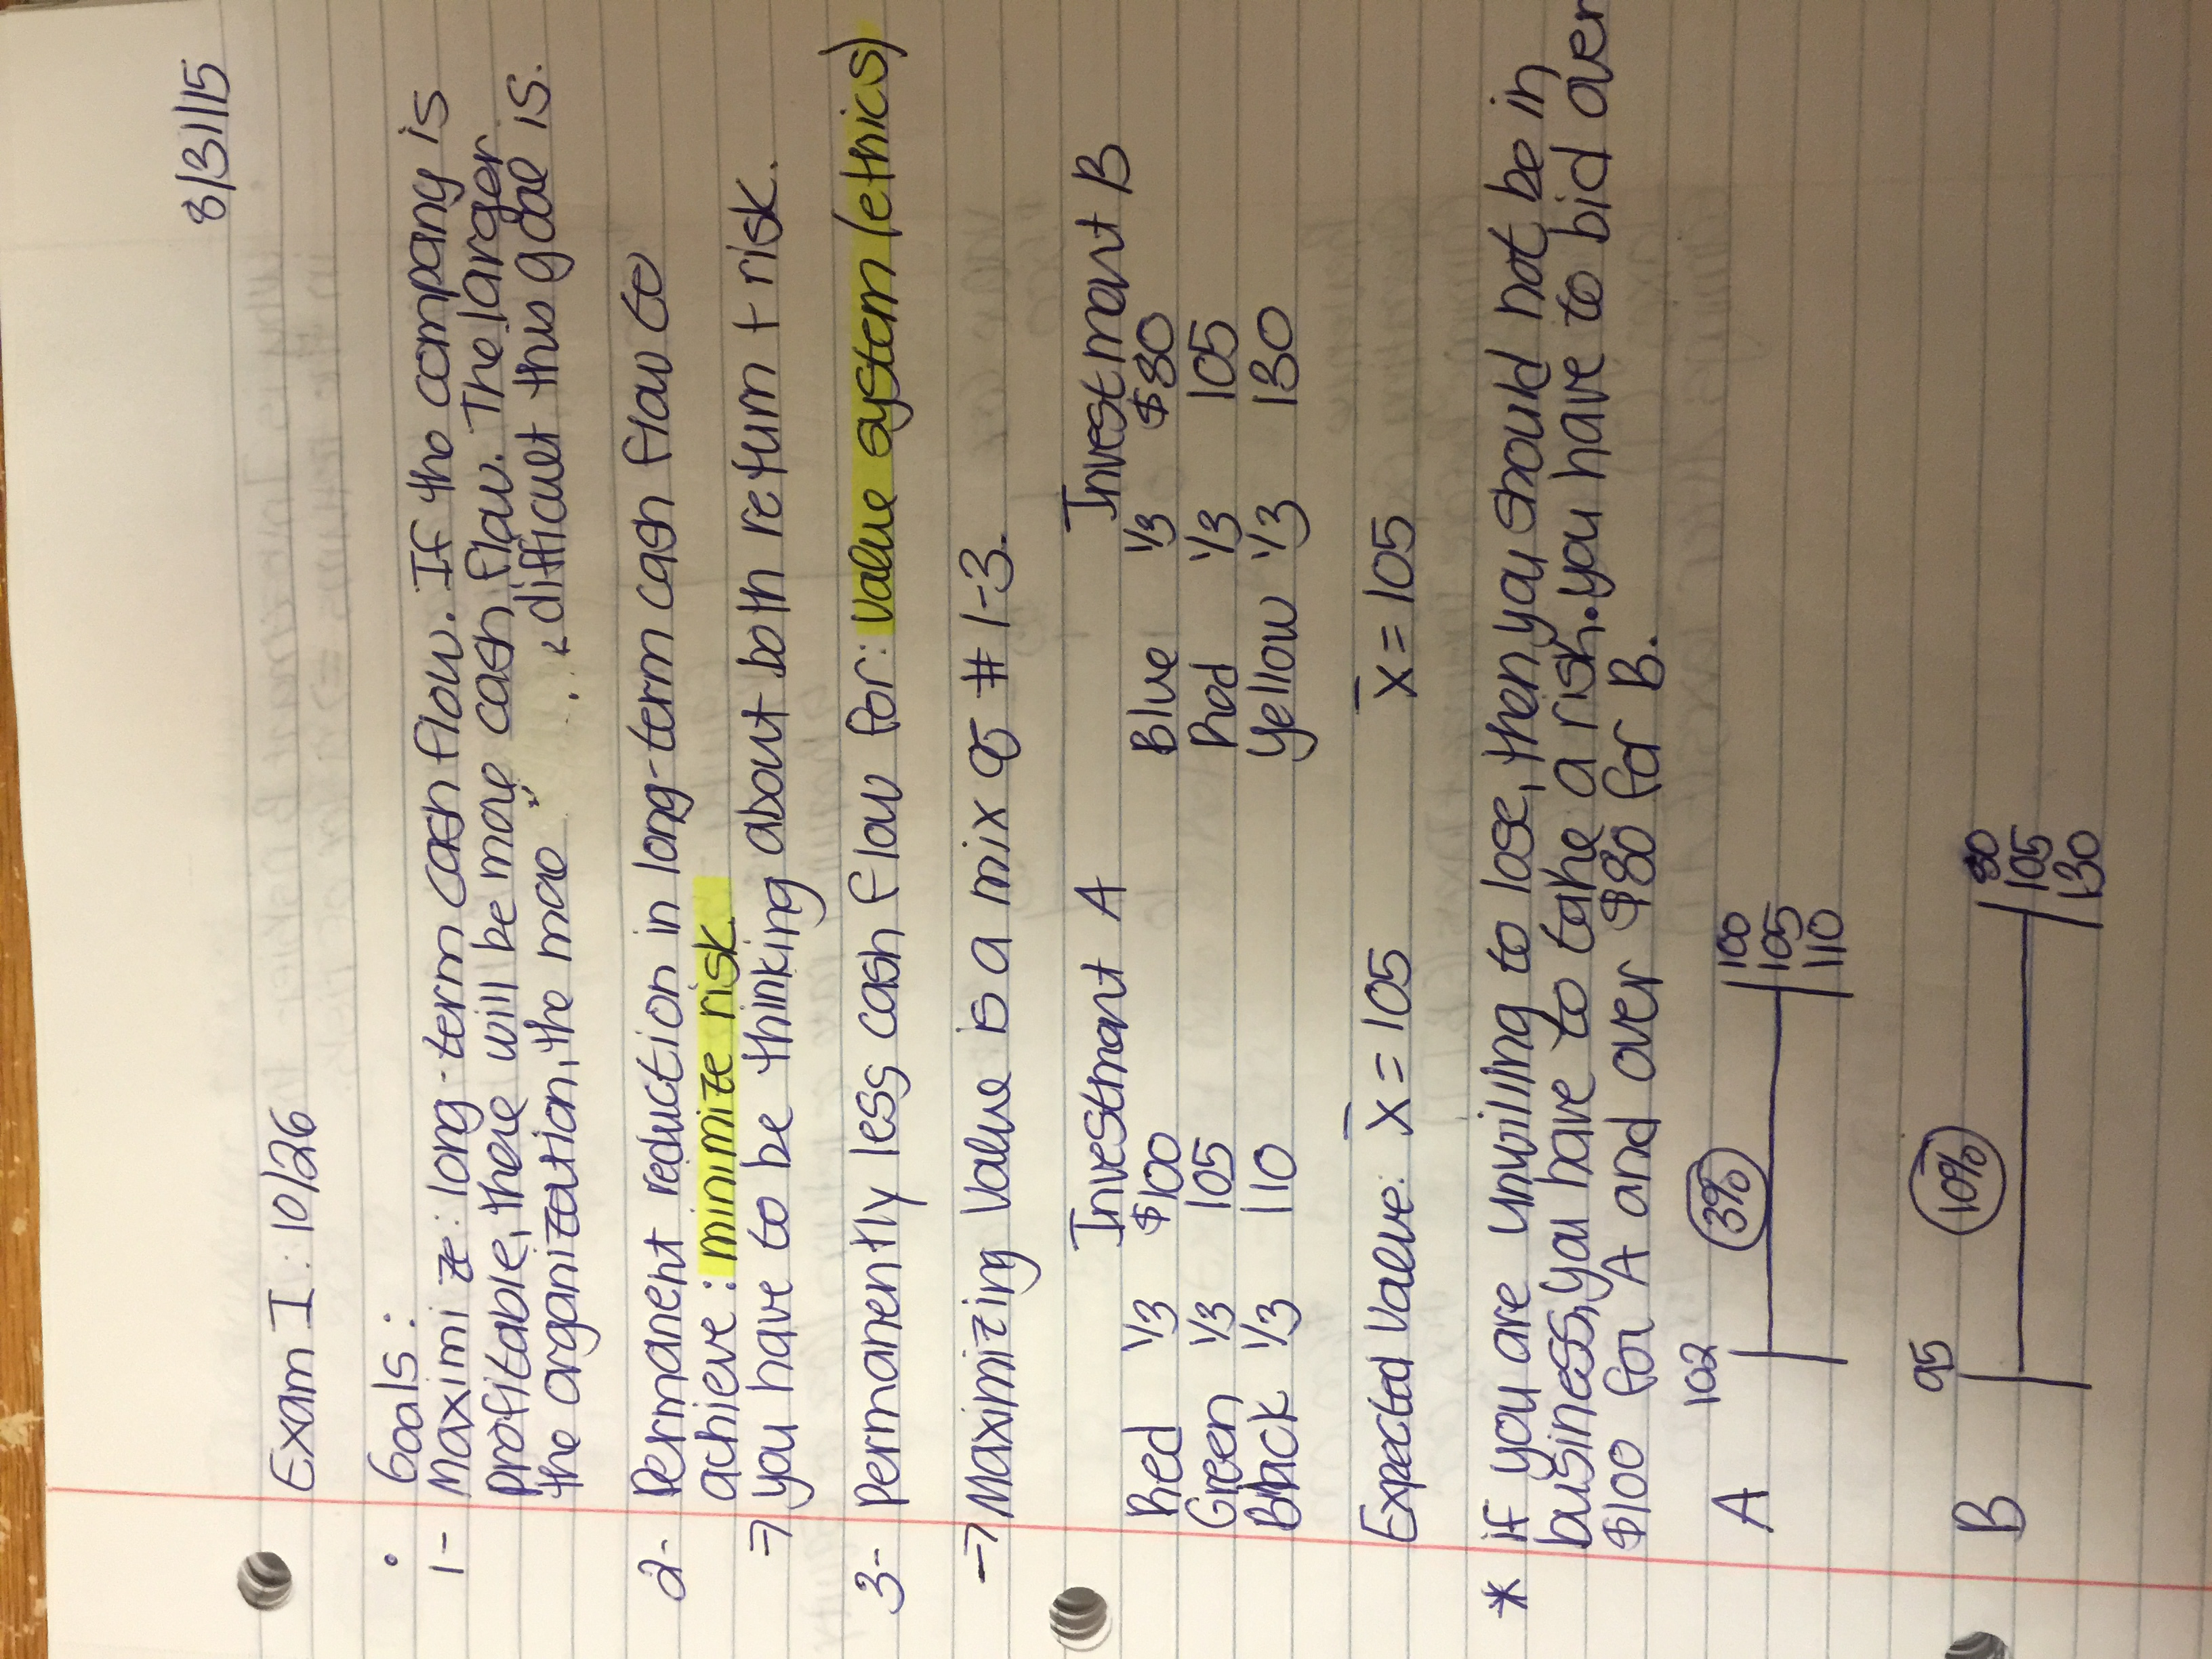 8/31/15
Exam I: 10/26
• Goals:
1- Maximize: long-term cash flow. If the company is
profitable, there will be more cash flow. The larger
the organization, the more difficult this goal is.
2- Permanent reduction in long-term cash flow to
achieve: minimize risk.
→ you have to be thinking about both return + risk.
3- Permanently less cash flow for: value system (ethics)
→ Maximizing Value is a mix of #1-3.
Investment A Investment B
Red 1/3 $100 Blue 1/3 $80
Green 1/3 105 Red 1/3 105
Black 1/3 110 Yellow 1/3 130
Expected Value: x̄ = 105 x̄ = 105
* If you are unwilling to lose, then you should not be in
business, you have to take a risk. you have to bid over
$100 for A and over $80 for B.
A 102 3% 100
105
110
B 95 10% 80
105
130